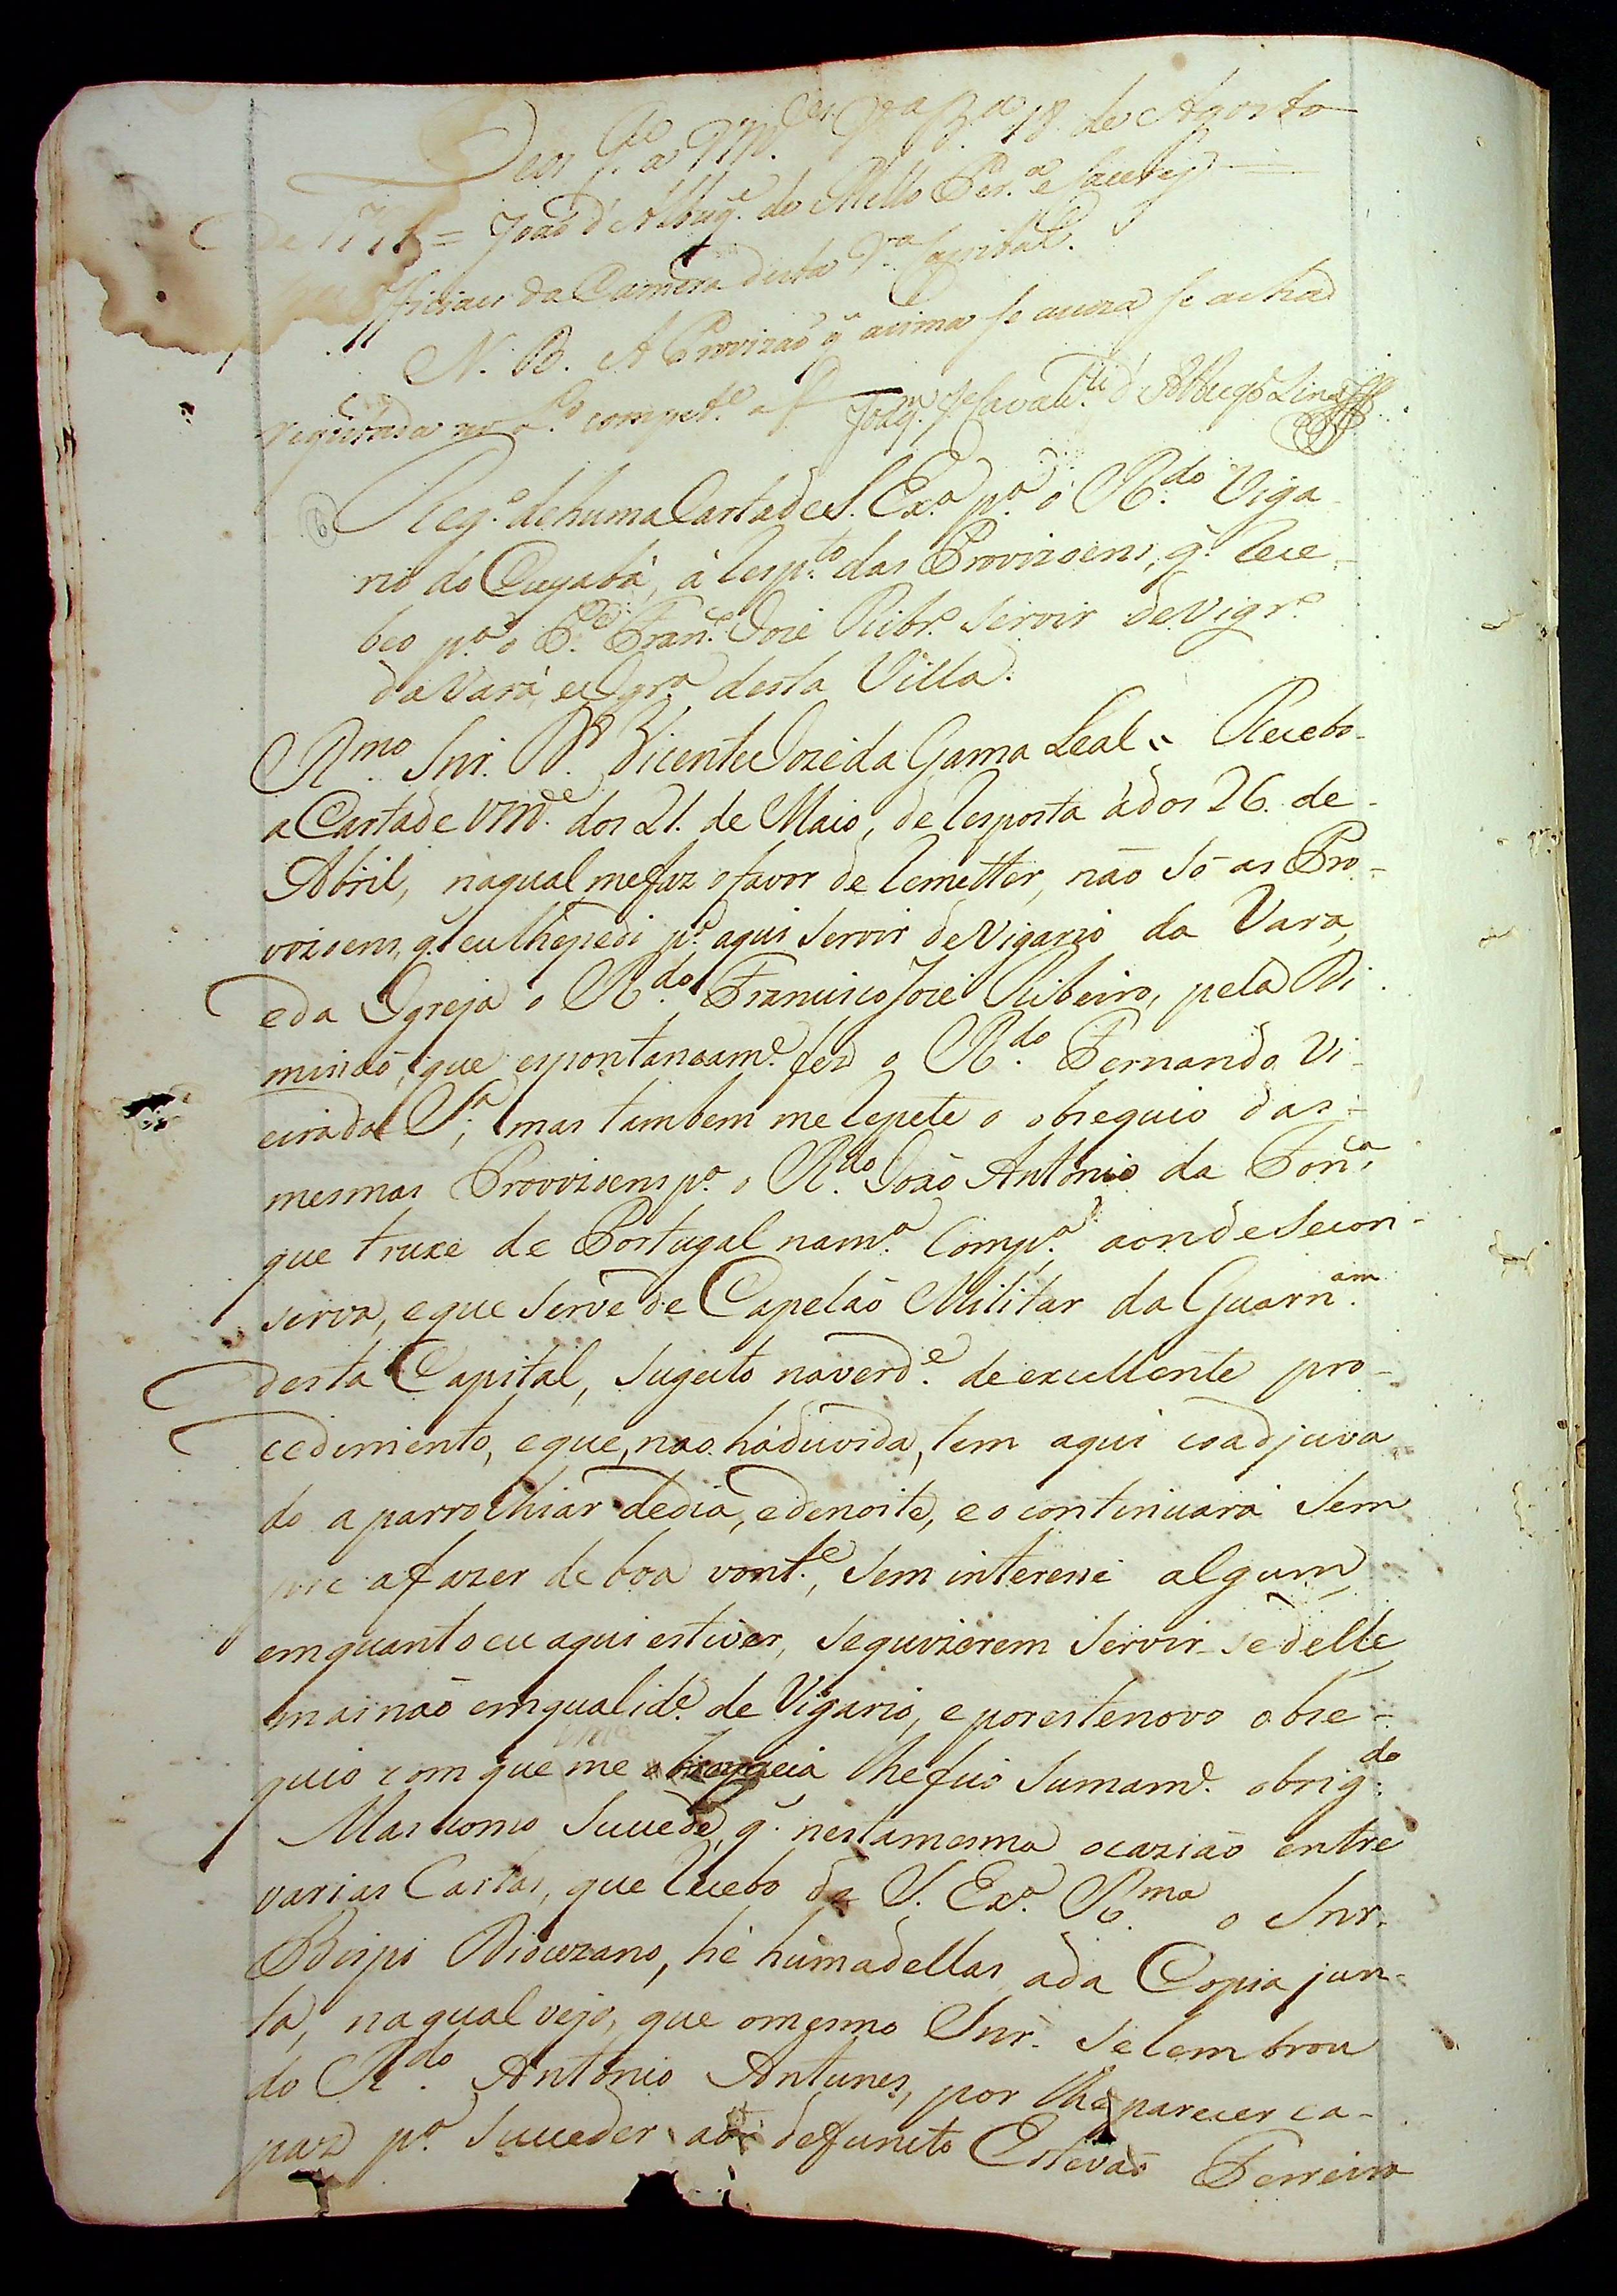 Deos g.e a VM.ces V.a B.a 18 de Agosto
de 1791 = João d'Albuq.e de Mello Per.a e Caceres
Officiaes da Camera desta V.a Capital.
N. B. A Provizaõ q̃ acima se acuza se acha
registada no L.o compet.e a f
Joaq.m Je Cavalc.ti d'Albuqe Lins
Reg.o de huma Carta de S. Ex.a p.a o R.do Viga-
rio do Cuyabá, á resp.to das Provizoens, q̃. rece-
beo p.a o P.e Fran.co Jozé Ribr.o servir de Vigr.o
da Vara, e Igr.a desta Villa.
R.mo Snr. D.r Vicente Jozé da Gama Leal = Recebo
a Carta de VM.ce dos 21. de Maio, de resposta á dos 26. de
Abril, na qual me faz o favor de remetter, naõ só as Pro-
vizoens, q̃ eu lhe pedi p.a aqui servir de Vigario da Vara,
e da Igreja o R.do Francisco Jozé Ribeiro, pela Di-
missaõ, que espontaneam.e fez o R.do Fernando Vi-
eira da S.a, mas tambem me repete o obsequio das
mesmas Provizoens p.a o R.do Joaõ Antonio da Fon.ca,
que truxe de Portugal na m.a Comp.a aonde se con-
serva, e que serve de Capelaõ Militar da Guarn.am
desta Capital, sugeito na verd.e de excellente pro-
cedimento, e que, naõ há duvida, tem aqui coadjuva
do a parrochiar de dia, e de noite, e o continuará sem
pre a fazer de boa vont.e, sem interesse algum
emquanto eu aqui estiver, se quizerem servir-se delle
mas naõ em qualid.e de Vigario, e por este novo obse-
quio com que me obsequeia lhe fico sumam.e obrig.do
Mas como succede, q̃. nesta mesma ocaziaõ entre
varias Cartas, que recebo de S. Ex.a R.ma o Snr.
Bispo Diocezano, hé huma dellas a da Copia jun-
ta, na qual vejo, que o mesmo Snr. se lembrou
do R.do Antonio Antunes, por lhe parecer ca-
paz p.a succeder ao defuncto Estevaõ Ferreira